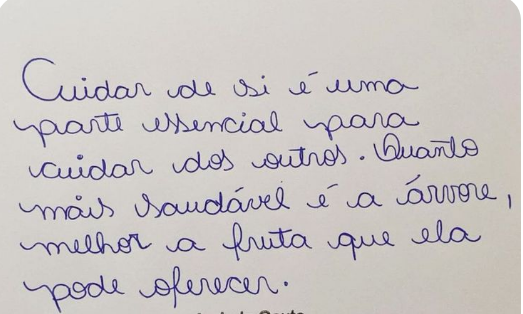 Cuidar de si é uma
parte essencial para
cuidar dos outros. Quanto
mais saudável é a árvore,
melhor a fruta que ela
pode oferecer.